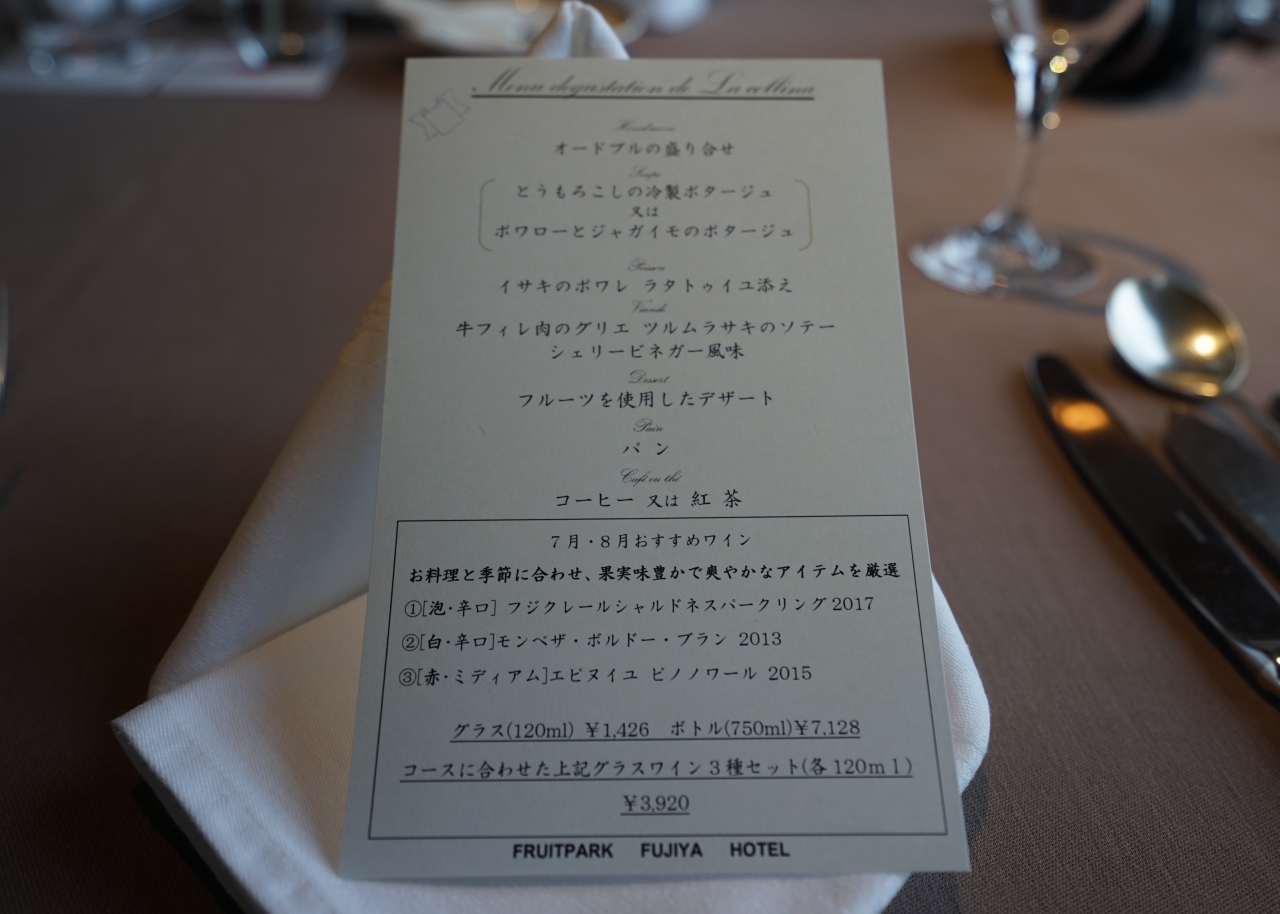 Menu degustation de La collina
オードブルの盛り合せ
Soupe
とうもろこしの冷製ポタージュ
又は
ポワローとジャガイモのポタージュ
Poisson
イサキのポワレ ラタトゥイユ添え
Viande
牛フィレ肉のグリエ ツルムラサキのソテー
シェリービネガー風味
Dessert
フルーツを使用したデザート
Pain
パン
Café ou thé
コーヒー 又は 紅茶
7月・8月おすすめワイン
お料理と季節に合わせ、果実味豊かで爽やかなアイテムを厳選
①[泡・辛口] フジクレールシャルドネスパークリング2017
②[白・辛口]モンペザ・ボルドー・ブラン 2013
③[赤・ミディアム]エピヌイユ ピノノワール 2015
グラス(120ml) ¥1,426 ボトル(750ml)¥7,128
コースに合わせた上記グラスワイン3種セット(各120ml)
¥3,920
FRUITPARK FUJIYA HOTEL